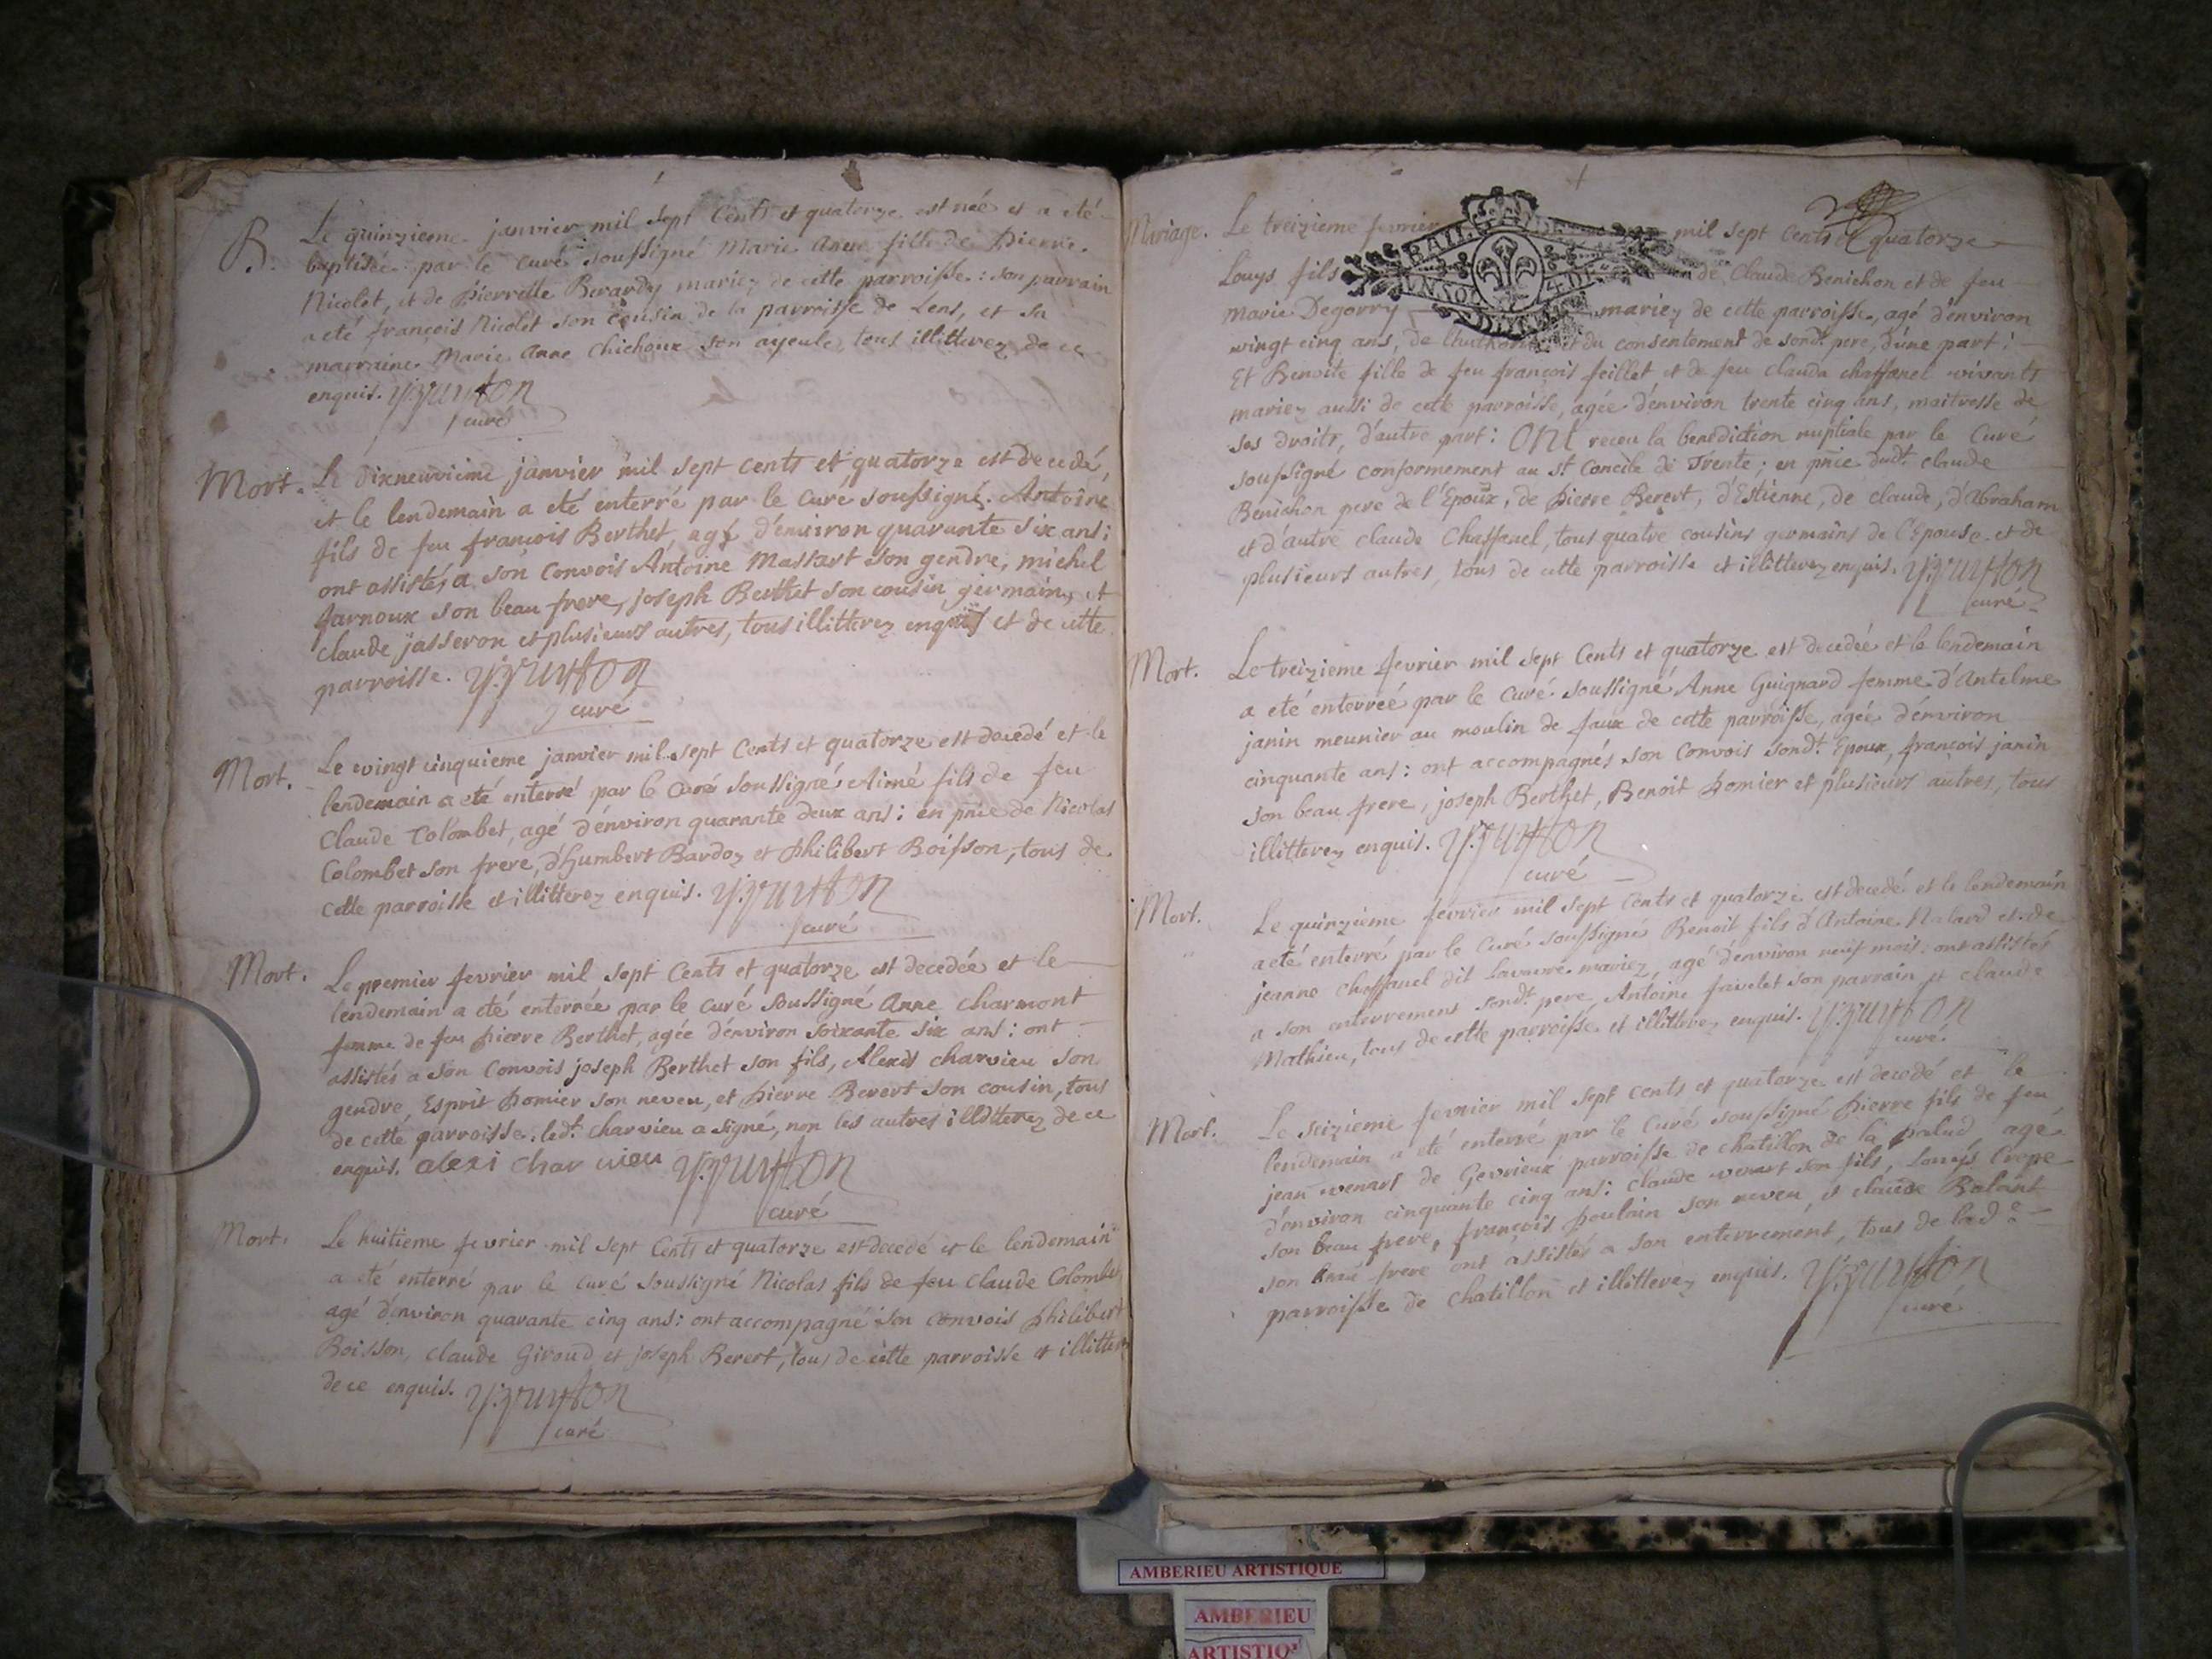 B. Le quinzieme janvier mil sept Cents et quatorze est née et a eté
baptisée par le curé soussigné Marie Anne fille de pierre
Nicolet, et de pierrette Berardy mariez de cette parroisse : son parrain
a eté françois Nicolet son cousin de la parroisse de Lens, et sa
marraine Marie Anne Chichoux son ayeule, tous illitterez de ce
enquis.
curé
Mort. Le dixneuvieme janvier mil sept cents et quatorze est decedé,
et le lendemain a eté enterré par le curé soussigné Antoine
fils de feu françois Berthet, agé d'environ quarante six ans :
ont assistés a son convois Antoine Massart son gendre, michel
Jarnoux son beau frere, joseph Berthet son cousin germain, et
claude jasseron et plusieurs autres, tous illitterez enquis et de cette
parroisse.
curé
Mort. Le vingt cinquieme janvier mil sept Cents et quatorze est decedé et le
lendemain a eté enterré par le Curé soussigné Aimé fils de feu
Claude Colombet, agé d'environ quarante deux ans : en pñce de Nicolas
Colombet son frere, d'humbert Bardoz et philibert Boisson, tous de
cette parroisse et illitterez enquis.
curé
Mort. Le premier fevrier mil sept Cents et quatorze est decedée et le
lendemain a eté enterrée par le curé soussigné Anne Charmont
femme de feu pierre Berthet, agée d'environ soixante six ans : ont
assistés a son Convois joseph Berthet son fils, Alexis charvieu son
gendre, Esprit pomier son neveu, et pierre Berert son cousin, tous
de cette parroisse. ledt. charvieu a signé, non les autres illitterez de ce
enquis. alexi charvieu
curé
Mort. Le huitieme fevrier mil sept Cents et quatorze est decedé et le lendemain
a eté enterré par le curé soussigné Nicolas fils de feu Claude Colombet
agé d'environ quarante cinq ans : ont accompagné son convois philibert
Boisson, claude Giroud et joseph Berert, tous de cette parroisse et illitterez
de ce enquis.
curé
Mariage. Le treizieme fevrier mil sept Cents et quatorze
Louys fils de Claude Benichon et de feu
Marie Degorry mariez de cette parroisse, agé d'environ
vingt cinq ans, de et du consentement de sondt. pere, d'une part :
Et Benoite fille de feu françois feillet et de feu clauda chaffanel vivants
mariez aussi de cette parroisse, agée d'environ trente cinq ans, maitresse de
ses droits, d'autre part : Ont receu la benediction nuptiale par le Curé
soussigné conformement au st. Concile de Trente ; en pñce dudt. claude
Benichon pere de l'Epoux, de pierre Berert, d'Estienne, de claude, d'Abraham
et d'autre claude Chaffanel, tous quatre cousins germains de l'Epouse et de
plusieurs autres, tous de cette parroisse et illitterez enquis.
curé
Mort. Le treizieme fevrier mil sept Cents et quatorze est decedée et le lendemain
a eté enterreé par le curé soussigné Anne Guignard femme d'Antelme
janin meunier au moulin de faux de cette parroisse, agée d'environ
cinquante ans : ont accompagnés son convois sondt. Epoux, françois janin
son beau frere, joseph Berthet, Benoit pomier et plusieurs autres, tous
illitterez enquis.
curé
Mort. Le quinzieme fevrier mil sept Cents et quatorze est decedé et le lendemain
a eté enterré par le Curé soussigné Benoit fils d'Antoine Nalard et de
jeanne chaffanel dit mariez, agé d'environ neuf mois : ont assistés
a son enterrement sondt. pere, Antoine son parrain et claude
Mathieu, tous de cette parroisse et illitterez enquis.
curé.
Mort. Le seizieme fevrier mil sept Cents et quatorze est decedé et le
lendemain a eté enterré par le Curé soussigné pierre fils de feu
jean venart de Gevrieux parroisse de chatillon de la palud agé
d'environ cinquante cinq ans : claude venart son fils, Louys Crepe
son beau frere, françois poulain son neveu, et claude Balant
son beau frere ont assistés a son enterrement, tous de lade.
parroisse de Chatillon et illitterez enquis.
curé
AMBERIEU ARTISTIQUE
AMBERIEU